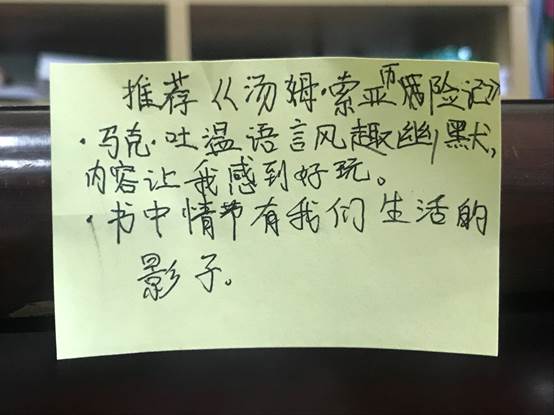 推荐《汤姆·索亚历险记》
·马克·吐温语言风趣幽默,
内容让我感到好玩。
·书中情节有我们生活的
影子。